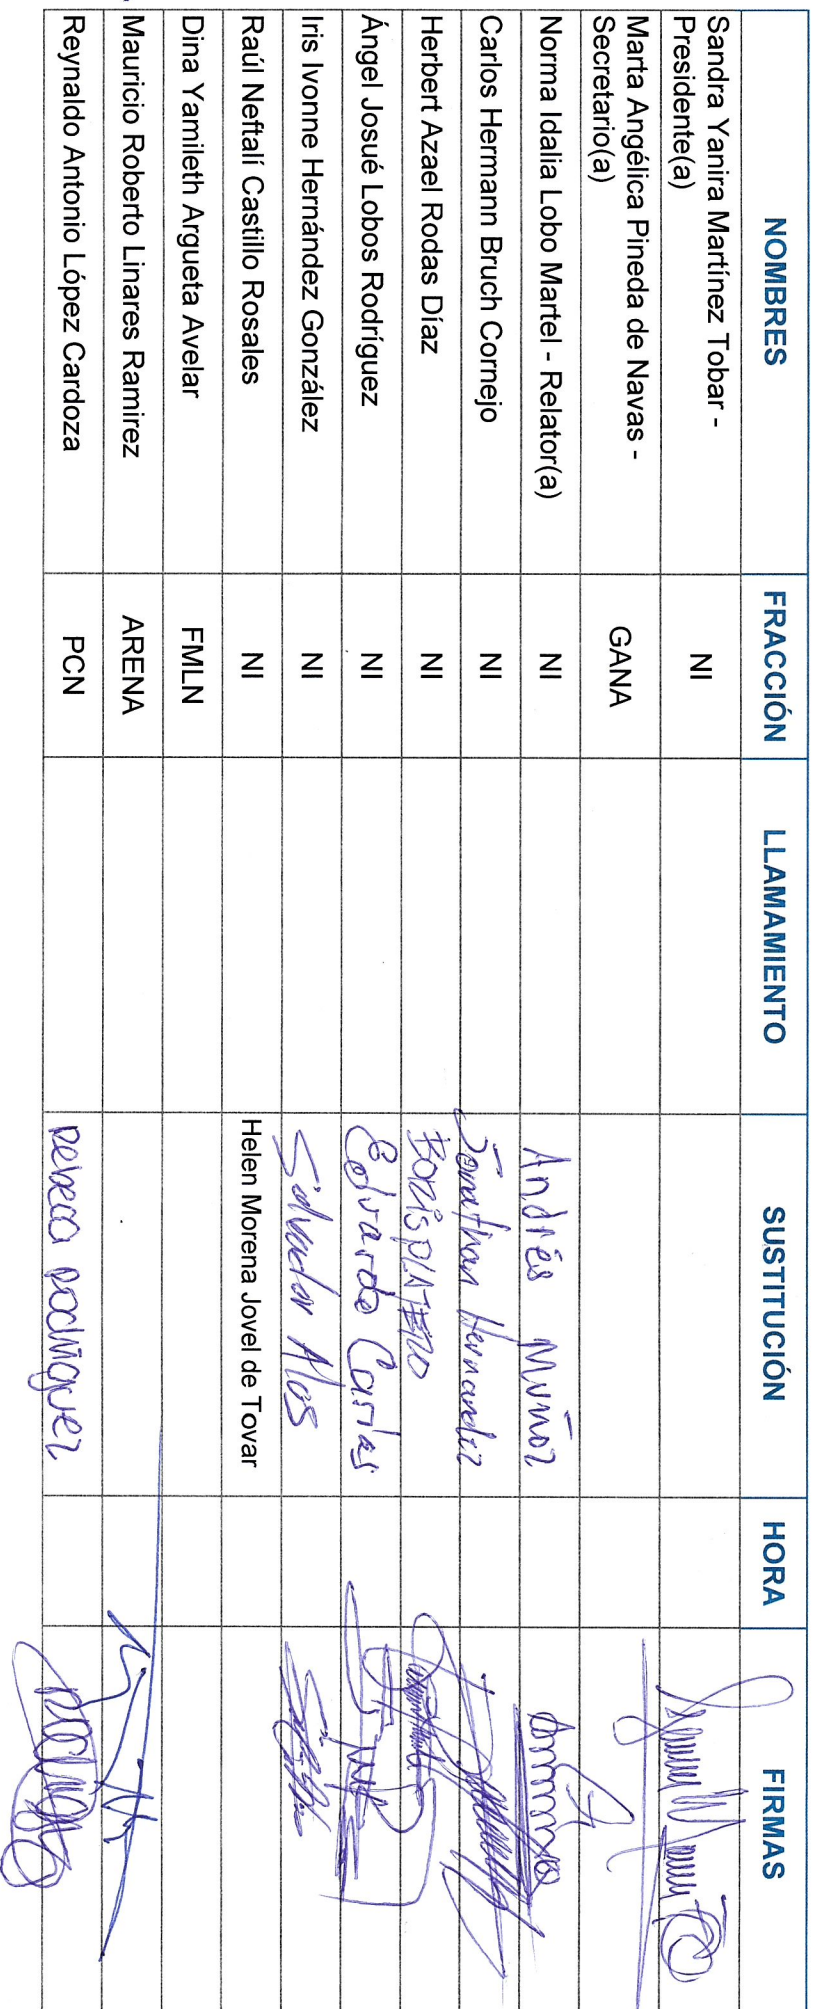 NOMBRES FRACCIÓN LLAMAMIENTO SUSTITUCIÓN HORA FIRMAS
Sandra Yanira Martínez Tobar -
Presidente(a) NI
Marta Angélica Pineda de Navas -
Secretario(a) GANA
Norma Idalia Lobo Martel - Relator(a) NI Andrés Muñoz
Carlos Hermann Bruch Cornejo NI Jonathan Hernandez
Herbert Azael Rodas Díaz NI Boris PLATERO
Ángel Josué Lobos Rodríguez NI Edvardo Carias
Iris Ivonne Hernández González NI Salvador Alas
Raúl Neftalí Castillo Rosales NI Helen Morena Jovel de Tovar
Dina Yamileth Argueta Avelar FMLN
Mauricio Roberto Linares Ramirez ARENA
Reynaldo Antonio López Cardoza PCN Rebeca Rodriguez